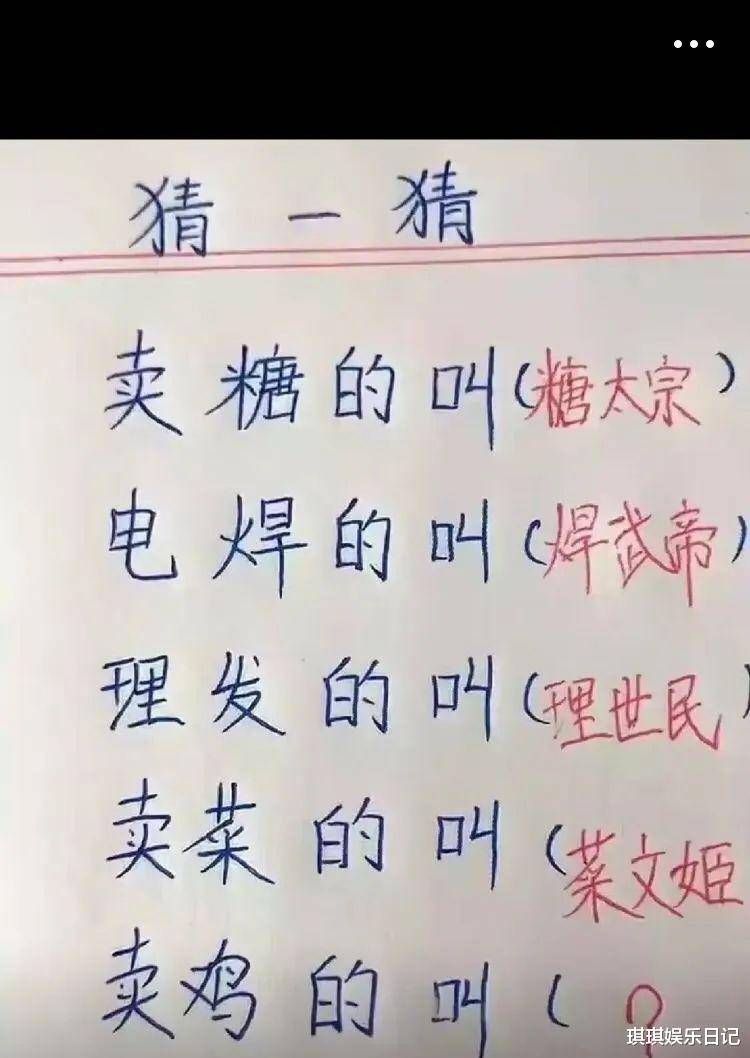 猜一猜
卖糖的叫(糖太宗)
电焊的叫(焊武帝)
理发的叫(理世民)
卖菜的叫(菜文姬
卖鸡的叫(?
琪琪娱乐日记